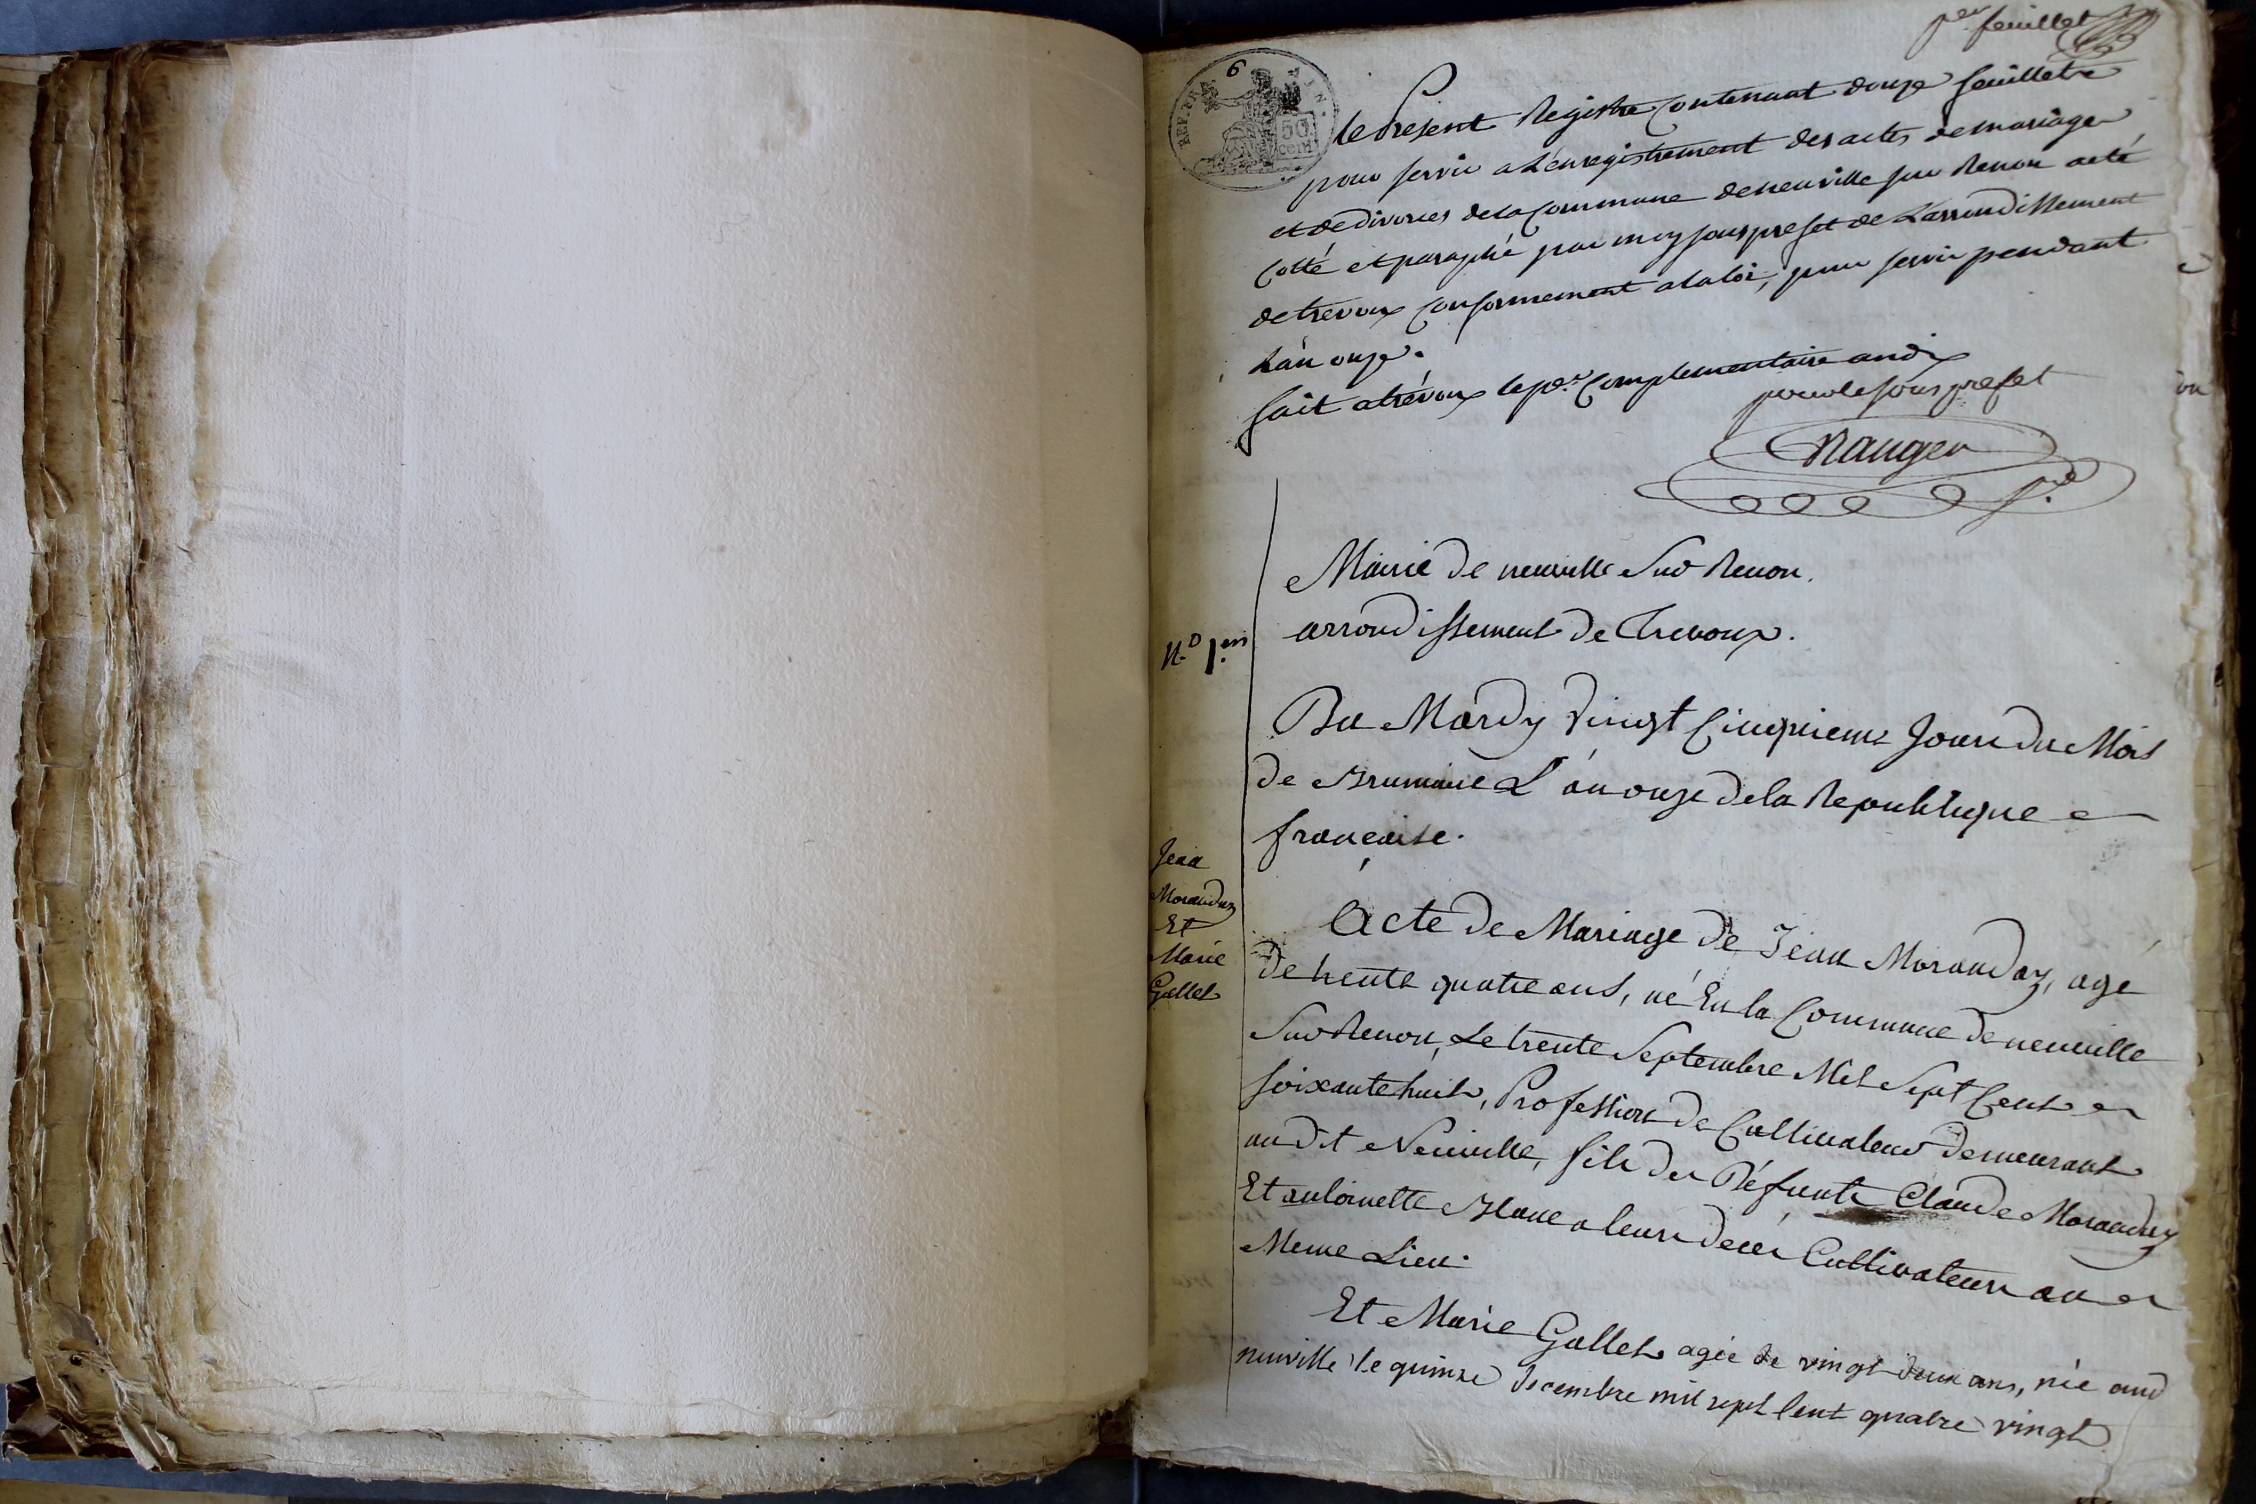 per feuillet
6
REP. FRA
50
cent.
le Present Registre Contenant douze feuillets
pour servir a L'enregistrement des actes de mariage
et de divorces de la Commune de neuville sur Renon a eté
Cotté et paraphé par moy sous prefet de L'arrondissement
de trevoux Conformement a la loi, pour servir pendant
L'an onze.
fait a trévoux le per Complementaire an dix
pour le sous prefet
Mairie de neuville Sur Renon.
arrondissement de Trevoux.
N.o 1.er
Du Mardy Vingt Cinquieme Jour du Mois
de Brumaire L'an onze de la Republique
francaise.
Jean
Morandas
Et
Marie
Gallet
Acte de Mariage de Jean Morandas, agé
de trente quatre ans, né En la Commune de neuville
Sur Renon, Le trente Septembre Mil Sept Cent
soixante huit, Profession de Cultivateur demeurant
au dit Neuville, fils des Défunts Claude Moranday
Et antoinette Blanc a leurs decés Cultivateurs au
Meme Lieu.
Et Marie Gallet agée de vingt deux ans, née aud
neuville le quinze decembre mil sept Cent quatre vingt